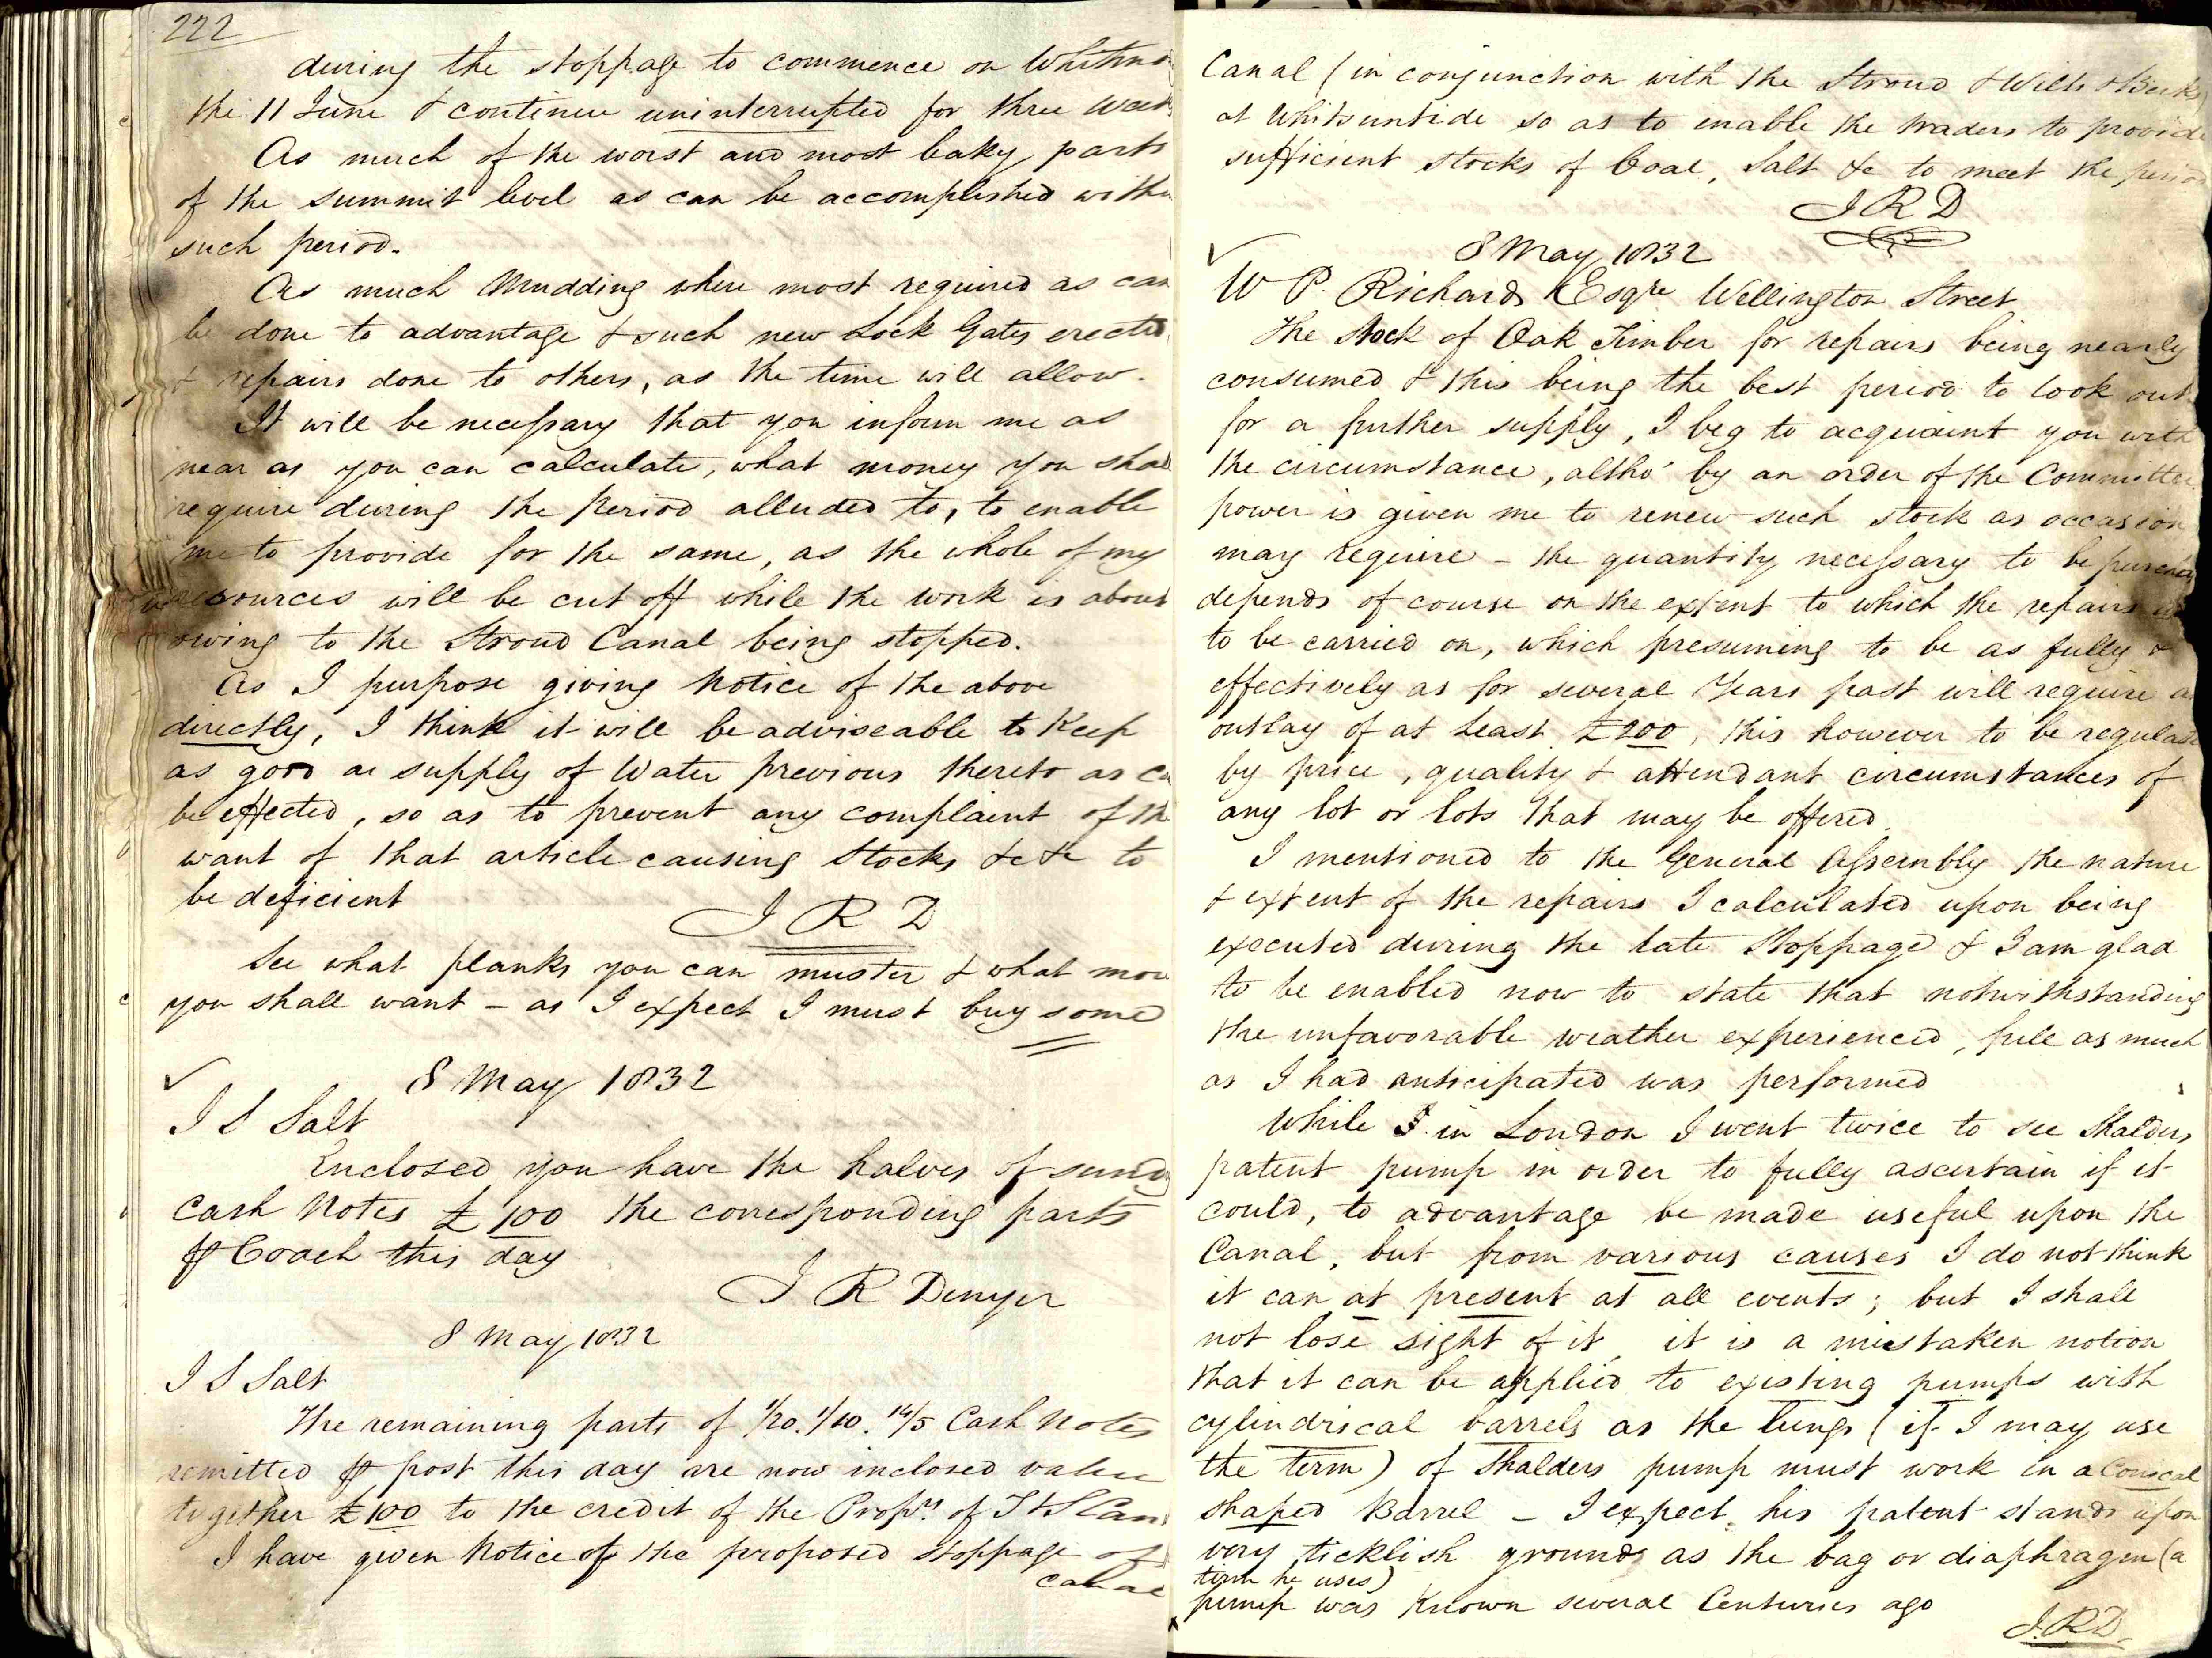 222
during the stoppage to commence on
the 11 June & continue uninterrupted for three
As much of the worst and most leaky parts
of the summit level as can be accomplished
such period.
As much Mudding where most required as can
be done to advantage & such new Lock Gates erected
& repairs done to others, as the time will allow.
It will be necessary that you inform me as
near as you can calculate, what money you
require during the period alluded to, to enable
me to provide for the same, as the whole of my
resources will be cut off while the work is about
owing to the Stroud Canal being stopped.
As I purpose giving Notice of the above
directly, I think it will be adviseable to Keep
as good a supply of Water previous thereto as
be effected, so as to prevent any complaint of
want of that article causing Stocks &c &c to
be deficient
I R D
See what planks you can muster & what
you shall want - as I expect I must buy some
✓
8 May 1832
I S Salt
Enclosed you have the halves of
Cash Notes £100 the corresponding parts
⅌ Coach this day
I R Denyer
8 May 1832
I S Salt
The remaining parts of 1/20. 1/10. 14/5 Cash Notes
remitted ⅌ post this day are now inclosed value
together £100 to the credit of the Proprs. of T & S
I have given Notice of the proposed stoppage of
canal
Canal (in conjunction with the Stroud & Wilts & Berks
at Whitsuntide so as to enable the traders to
sufficient stocks of Coal, Salt &c to meet the
I R D
✓
8 May 1832
W P. Richards Esqre Wellington Street
The Stock of Oak Timber for repairs being nearly
consumed & this being the best period to look out
for a further supply, I beg to acquaint you with
the circumstance, altho' by an order of the Committee
power is given me to renew such stock as occasion
may require - the quantity necessary to be
depends of course on the extent to which the repairs
to be carried on, which presuming to be as fully &
effectively as for several Years past will require
outlay of at least £200, this however to be
by price, quality & attendant circumstances of
any lot or lots that may be offered.
I mentioned to the General Assembly the nature
& extent of the repairs I calculated upon being
executed during the late Stoppage & I am glad
to be enabled now to state that notwithstanding
the unfavorable weather experienced, full as much
as I had anticipated was performed
While I in London I went twice to see Shalders
patent pump in order to fully ascertain if it
could, to advantage be made useful upon the
Canal, but from various causes I do not think
it can at present at all events; but I shall
not lose sight of it, it is a mistaken notion
that it can be applied to existing pumps with
cylindrical barrels as the lungs (if I may use
the term) of Shalders pump must work in a Conical
shaped Barrel - I expect his patent stands upon
very ticklish grounds as the bag or diaphragm (a
term he uses)
pump was Known several Centuries ago
I.R.D.